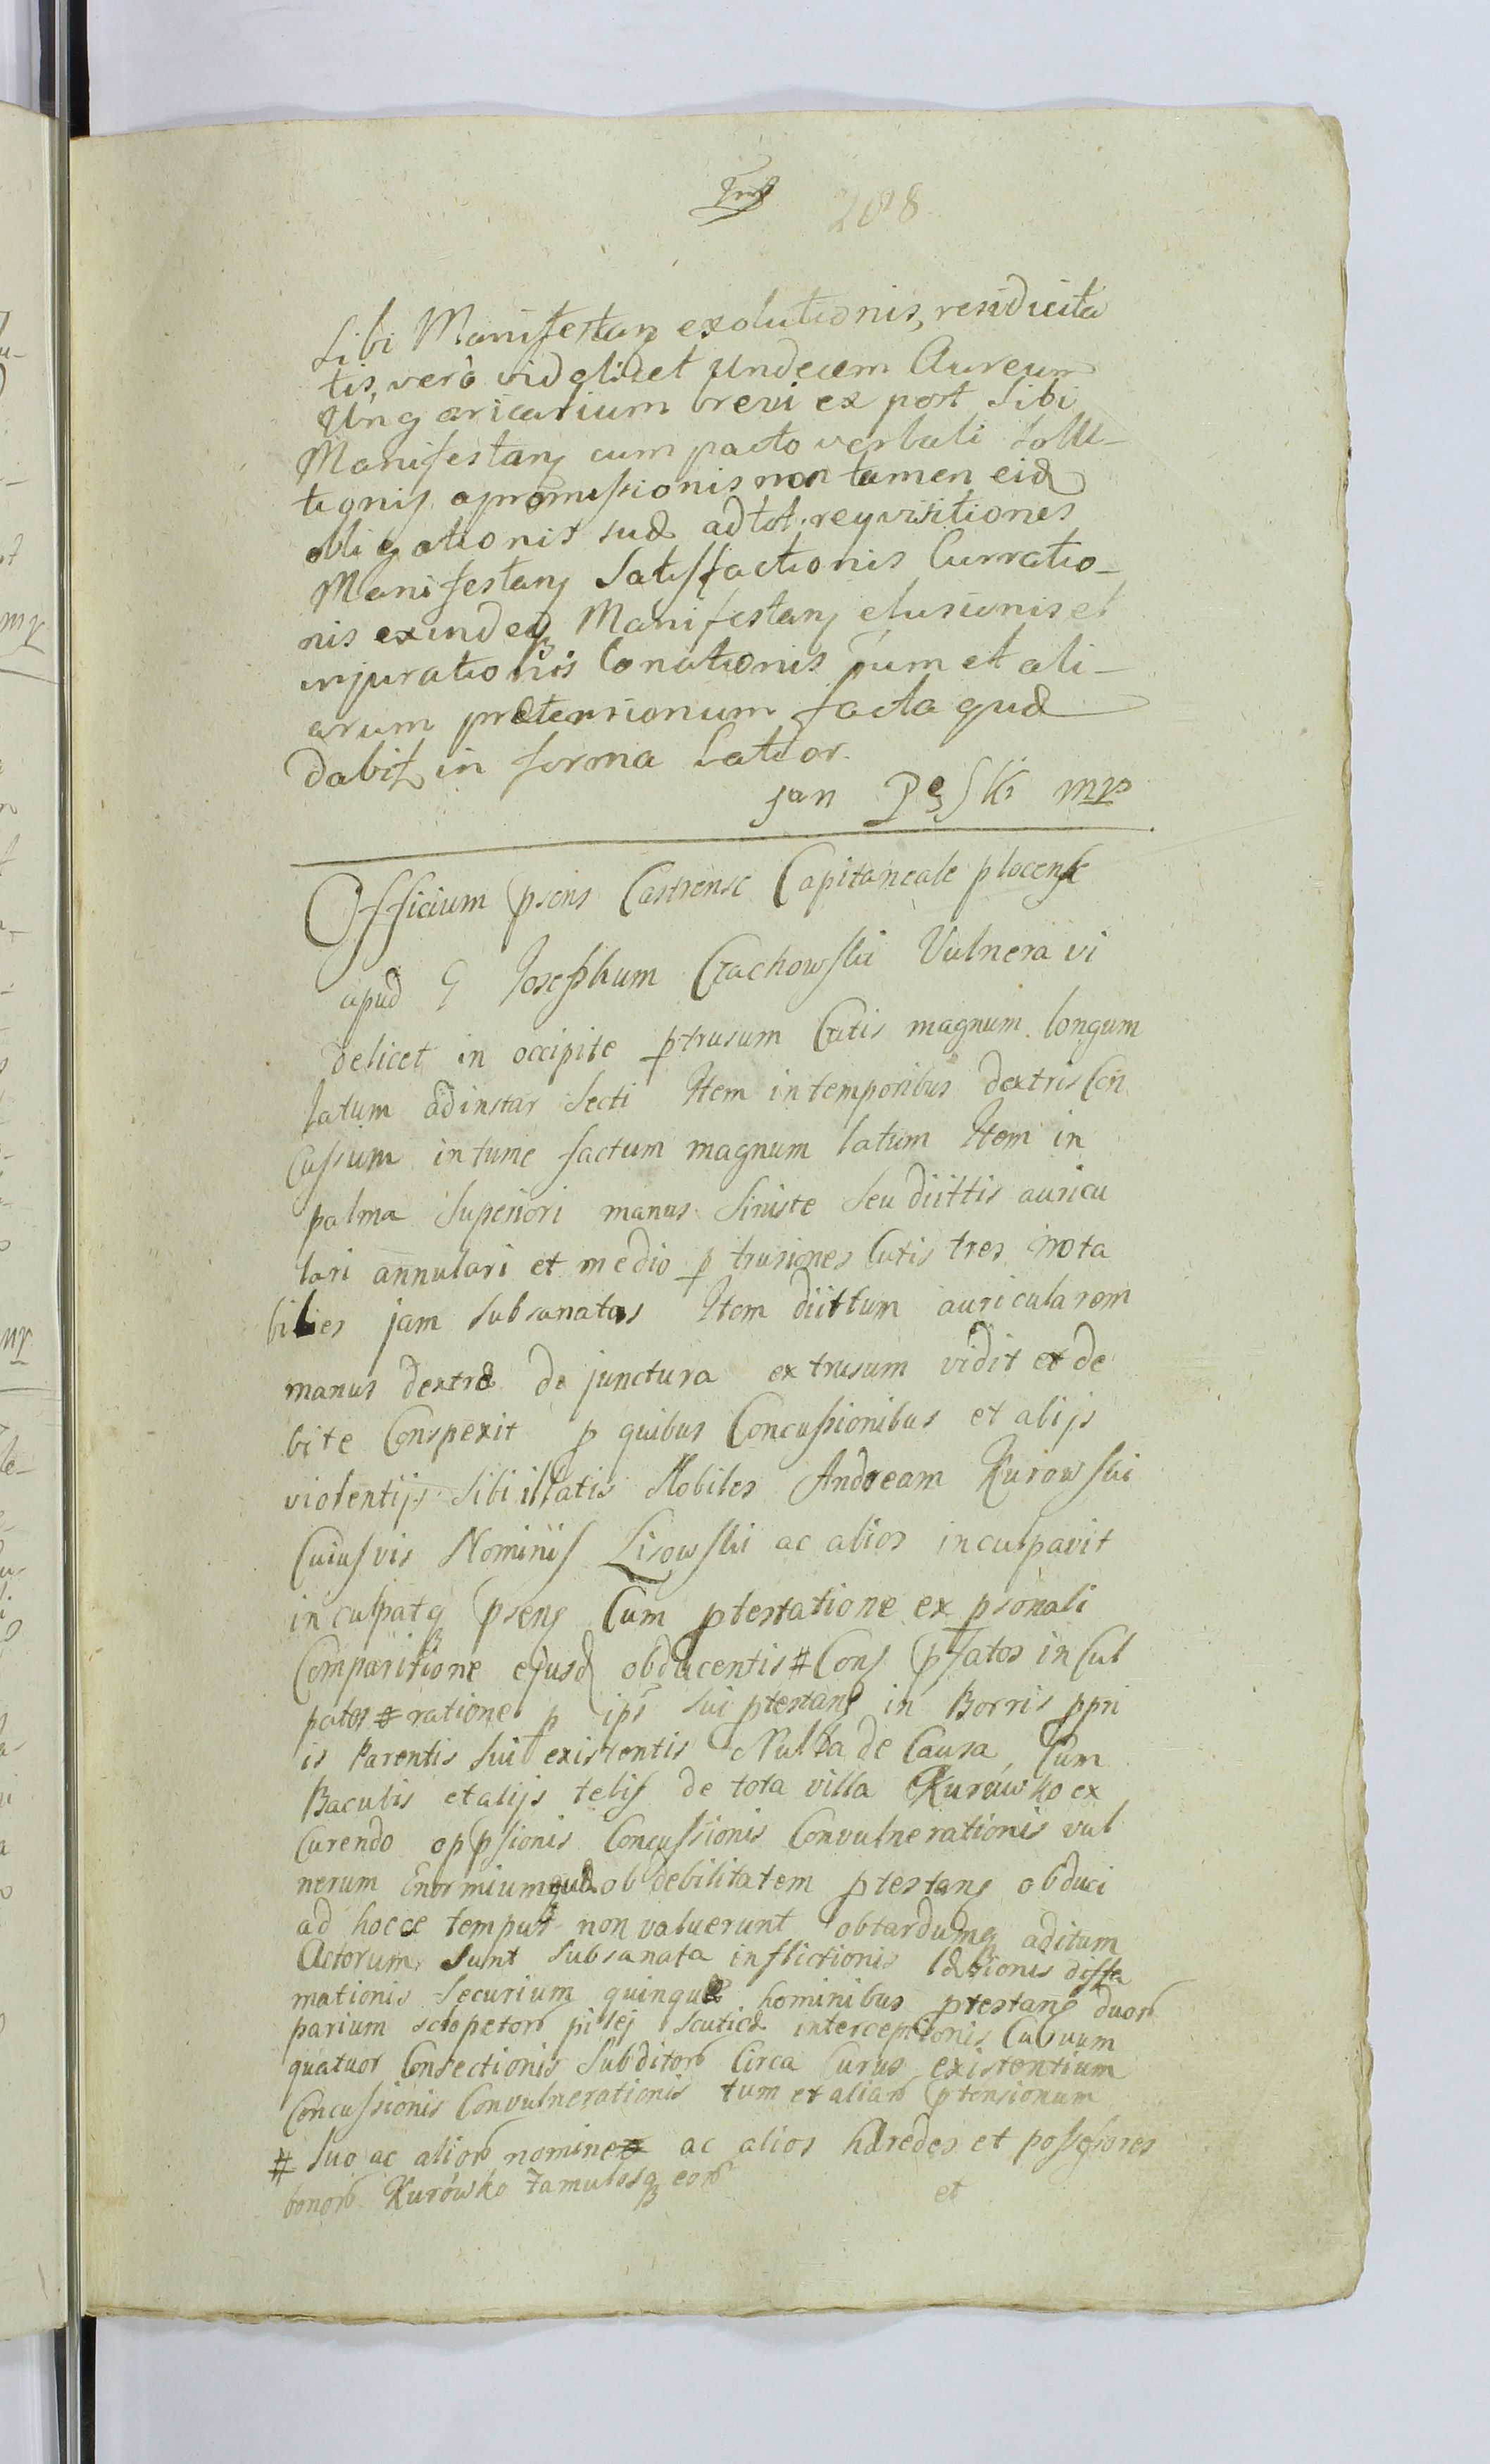 208
sibi Manifestanj exolutionis, residuita
tis, verò videlicet Undecem Aureum
Ungaricarium brevi ex post sibi
Manifestanj cum pacto verbali sollu-
tionis apromissionis non tamen eid
obligationis suæ ad tot requisitiones
Manifestanj Satisfactionis Curratio-
nis exindeq Manifestanj elusionis et
injurationis Conationis tum et ali-
arum prætensionum facta quæ
dabit in forma Latior.
jan Pęski mp
Officium psens Castrense Capitaneale plocense
apud G Josephum Czachowski Vulnera vi
delicet in occipite ptrusum Cutis magnum longum
latum adinstar secti Item in temporibus dextris Con
Cussum intume factum magnum latum Item in
palma superiori manus siniste seu diittis auricu
lari annulari et medio p trusiones Cutis tres nota
biles jam subsanatas Item diittum auricularem
manus dextræ de junctura extrusum vidit et de
bite Conspexit p quibus Concussionibus et alijs
violentijs sibi illatis Nobiles Andream Kurowski
Cuiusvis Nominis Lisowski ac alios inculpavit
inculpatq psens Cum ptestatione ex psonali
Comparitione ejusd obducentis # Cons pfatos in Cul
patos # ratione p ips sui ptestans in Borris ppri
is Parentis sui existentis Nulla de Causa, Cum
Baculis et alijs telis de tota villa Kurówko ex
Curendo oppsionis Concussionis Convulnerationis vul
nerum Enormium quæ ob debilitatem ptestans obduci
ad hocce tempus non valuerunt obtardumq aditum
Actorum, sunt subsanata inflictionis læsionis diffa
mationis securium quinque hominibus ptestans duor
parium sclopetor pilej scuticæ interceptionis Cu
quatuor Consectionis Subditor Circa Currus existentium
Concussionis Convulnerationis tum et aliar ptensionum
# suo ac alior nomine ac alios hæredes et possesores
bonor Kurówko famulosq eor
et